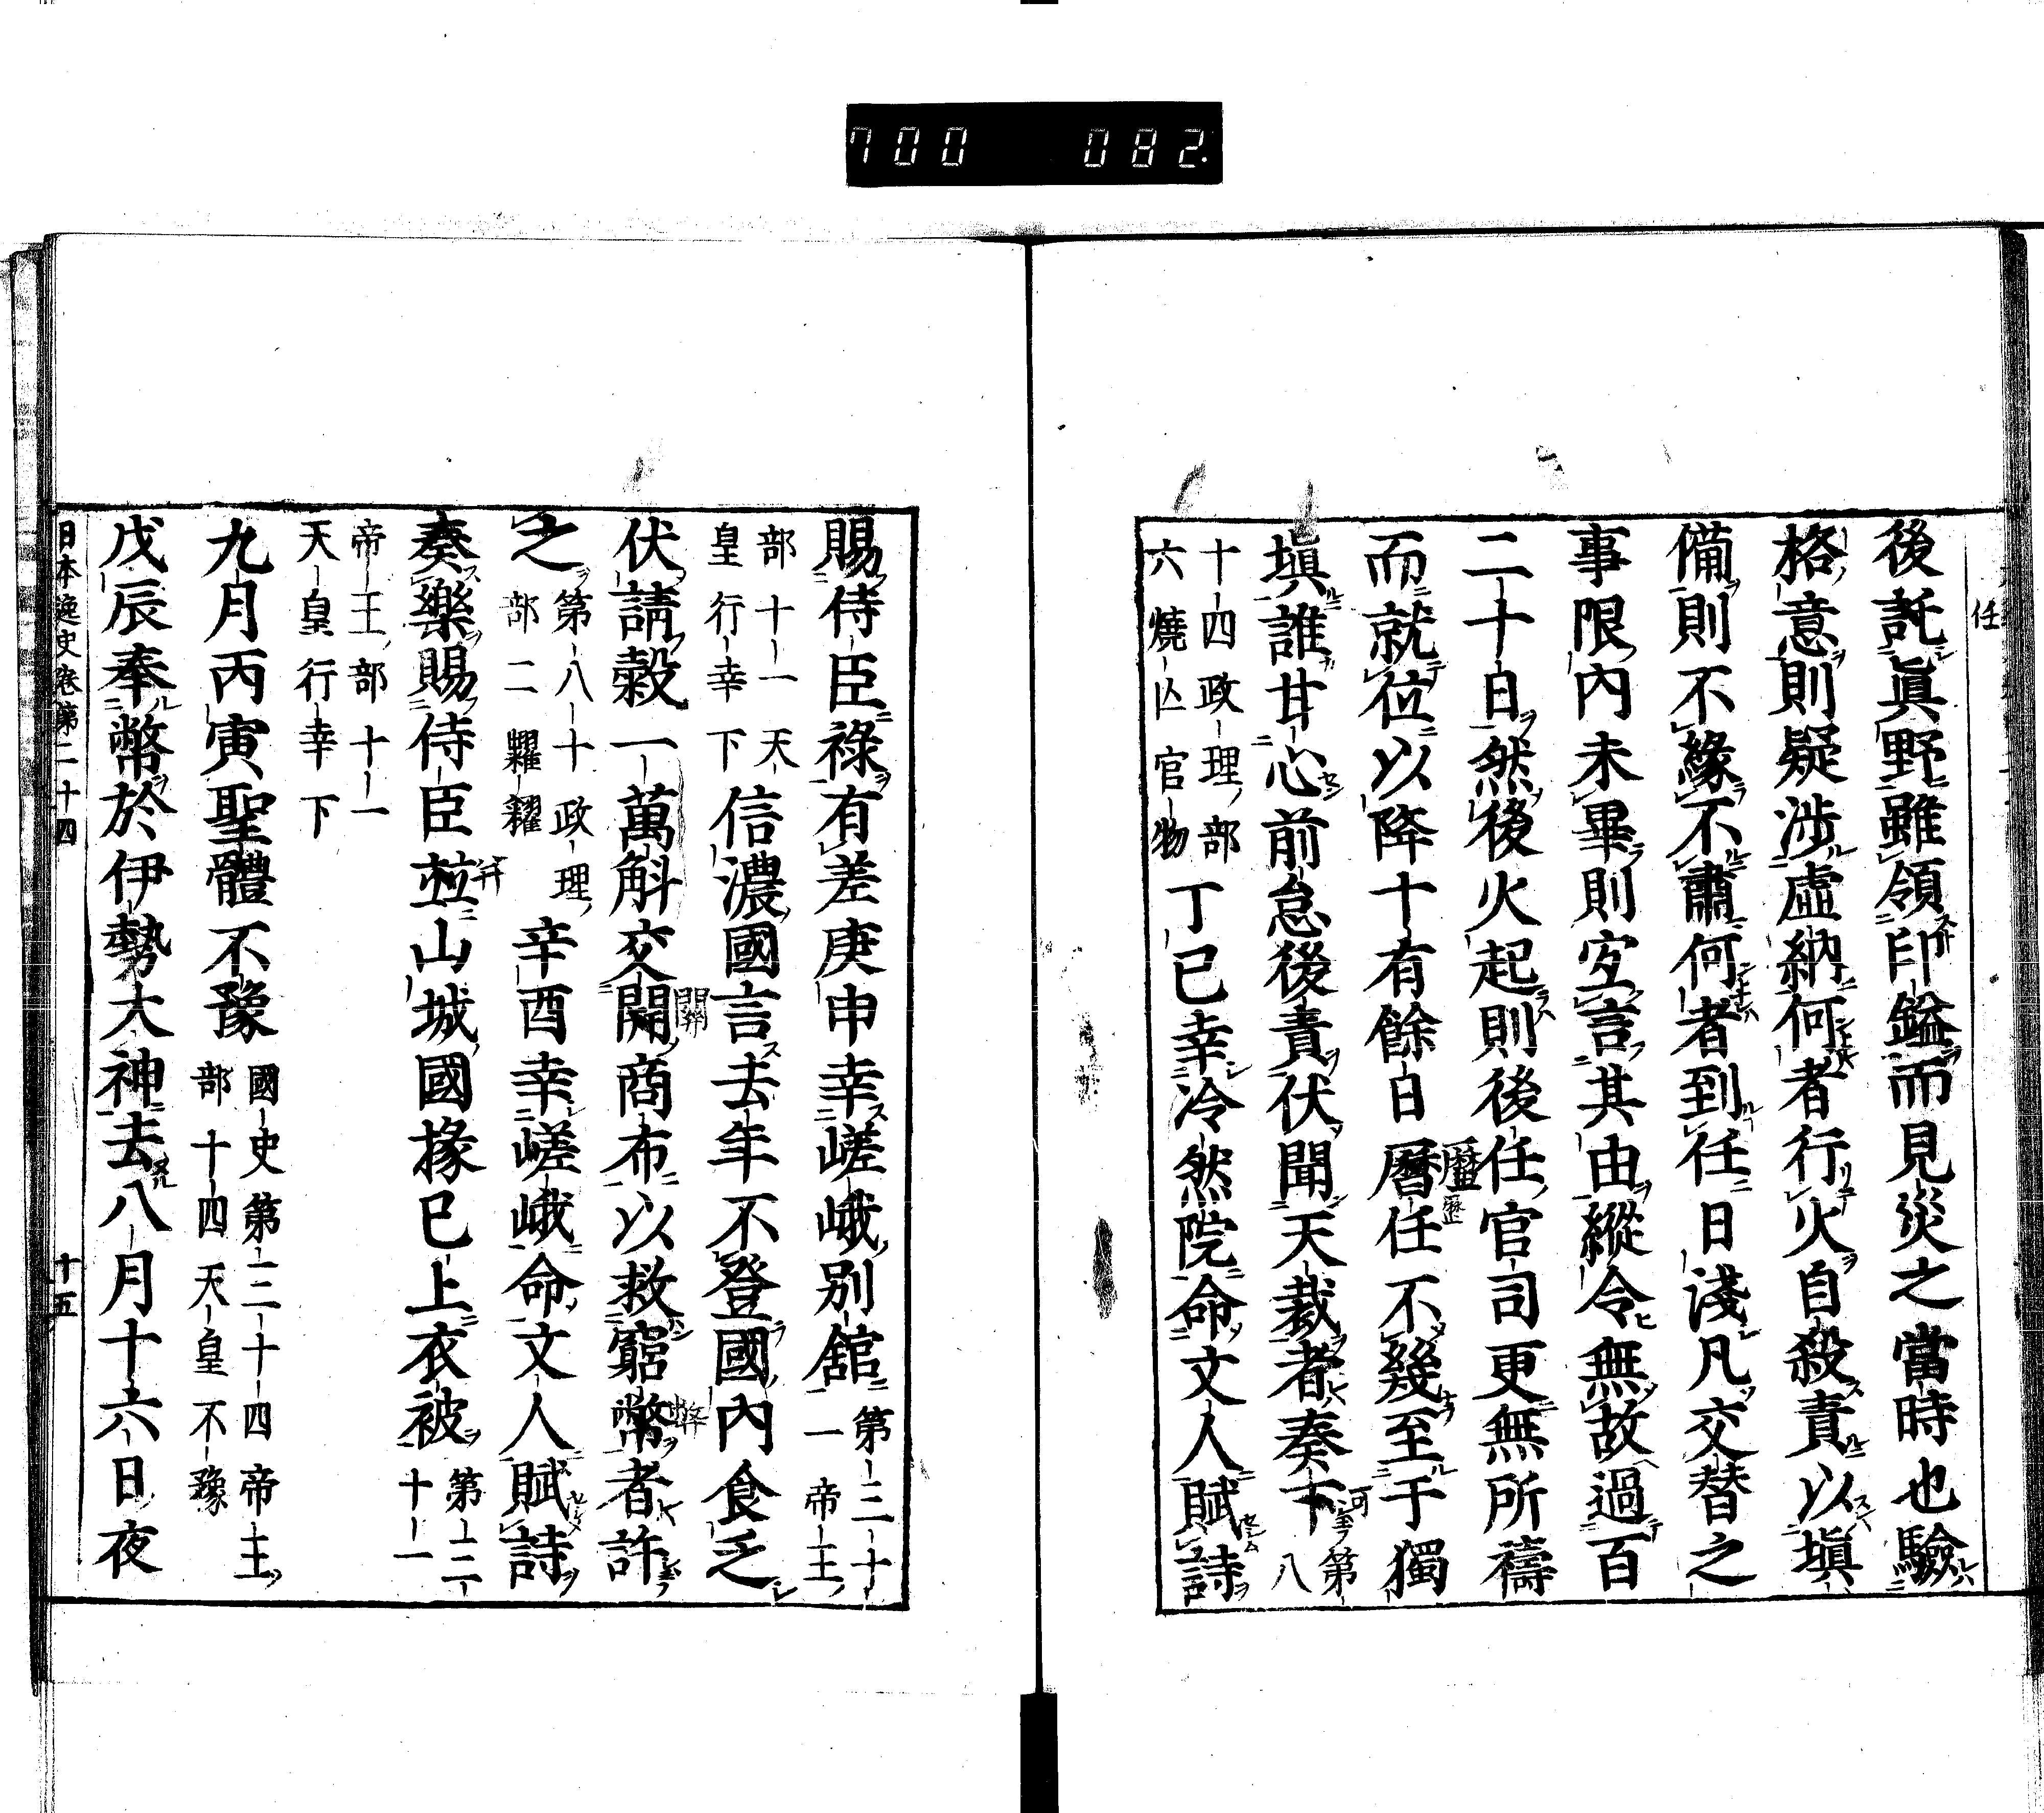 700 082
任
後託眞野雖領印鎰而見災之當時也驗
格意則疑涉虛納何者行火自殺責以塡
備則不緣不肅何者到任日淺凡交替之
事限內未畢則㝎言其由縱令無故過百
二十日然後火起則後任官司更無所禱
而就位以降十有餘日曆任不幾至于獨
塡誰甘心前怠後責伏聞天裁者奏下可 第八
十四政理部
六燒亾官物
丁巳幸冷然院命文人賦詩
賜侍臣祿有差庚申幸嵯峨別舘 第三十
一帝王
部十一天
皇行幸下
信濃國言去年不登國內食乏
伏請穀一萬斛交開商布以救窮幣者許
之 第八十政理
部二糶糴
辛酉幸嵯峨命文人賦詩
奏樂賜侍臣並山城國掾已上衣被 第二
十一
帝王部十一
天皇行幸下
九月丙寅聖體不豫 國史第三十四帝王
部十四天皇不豫
戊辰奉幣於伊勢大神去八月十六日夜
日本逸史卷第二十四 十五